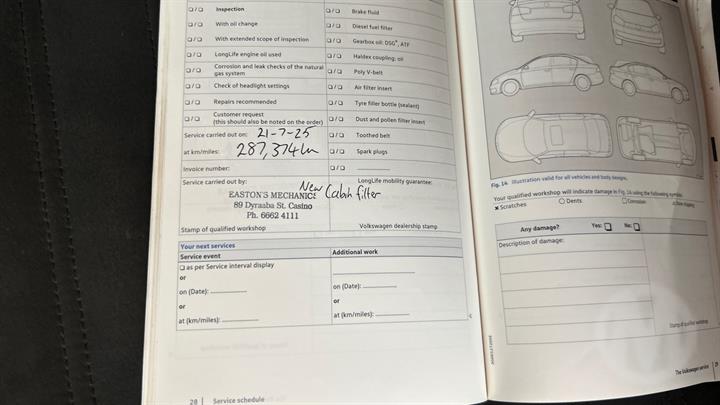 Inspection
Brake fluid
With oil change
Diesel fuel filter
With extended scope of inspection
Gearbox oil: DSG®, ATF
LongLife engine oil used
Haldex coupling; oil
Corrosion and leak checks of the natural
gas system
Poly V-belt
Check of headlight settings
Air filter insert
Repairs recommended
Tyre filler bottle (sealant)
Customer request
(this should also be noted on the order)
Dust and pollen filter insert
Service carried out on: 21-7-25
Toothed belt
at km/miles: 287,374km
Spark plugs
Invoice number:
Service carried out by:
LongLife mobility guarantee:
New Cabin filter
EASTON'S MECHANICS
89 Dyraaba St. Casino
Ph. 6662 4111
Stamp of qualified workshop
Volkswagen dealership stamp
Your next services
Service event
Additional work
as per Service interval display
or
on (Date):
on (Date):
or
or
at (km/miles):
at (km/miles):
28 | Service schedule
Fig. 14 Illustration valid for all vehicles and body designs.
Your qualified workshop will indicate damage in Fig. 14 using the following symbols:
× Scratches
Dents
Corrosion
Any damage?
Yes:
No:
Description of damage:
Stamp of qualified workshop
The Volkswagen service